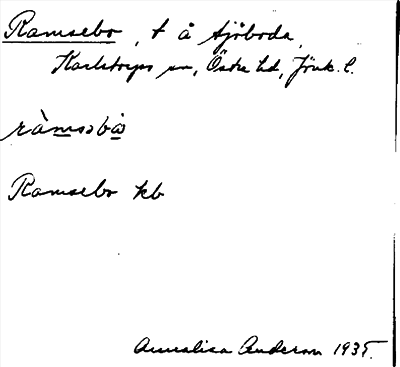 Ramsebo, t å Sjöboda,
Karlstorps sn, Östra hd, Jönk. l.
ràmsəbω
Ramsebo kb
Annalisa Anderson 1935.